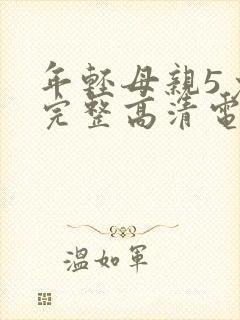 年軽母親5
完整高清電
溫如軍